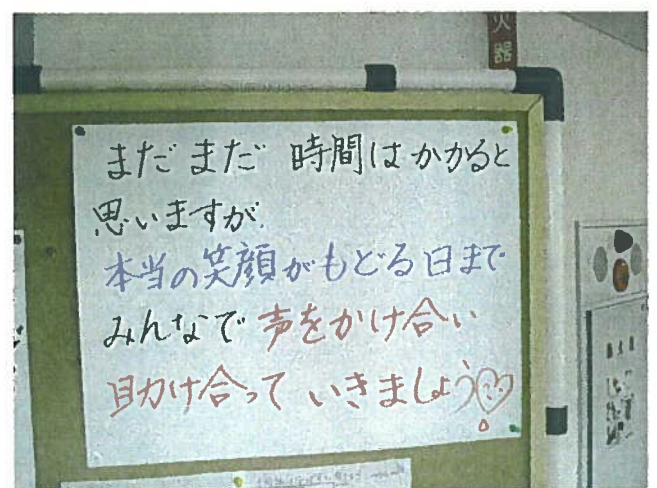 火
器
まだまだ 時間はかかると
思いますが、
本当の笑顔がもどる日まで
みんなで声をかけ合い
助け合っていきましょう